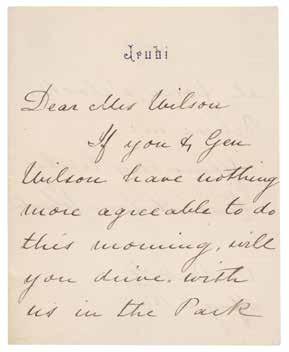 Dear Mrs Wilson
If you & Gen
Wilson have nothing
more agreeable to do
this morning, will
you drive with
us in the Park